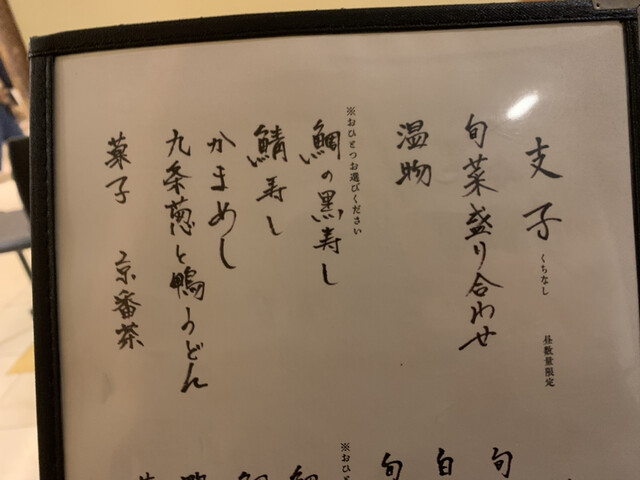 支子 くちなし 昼数量限定
旬菜盛り合わせ
温物
※おひとつお選びください
鯛の黒寿し
鯖寿し
かまめし
九条葱と鴨うどん
菓子 京番茶
旬
自
旬
※おひと